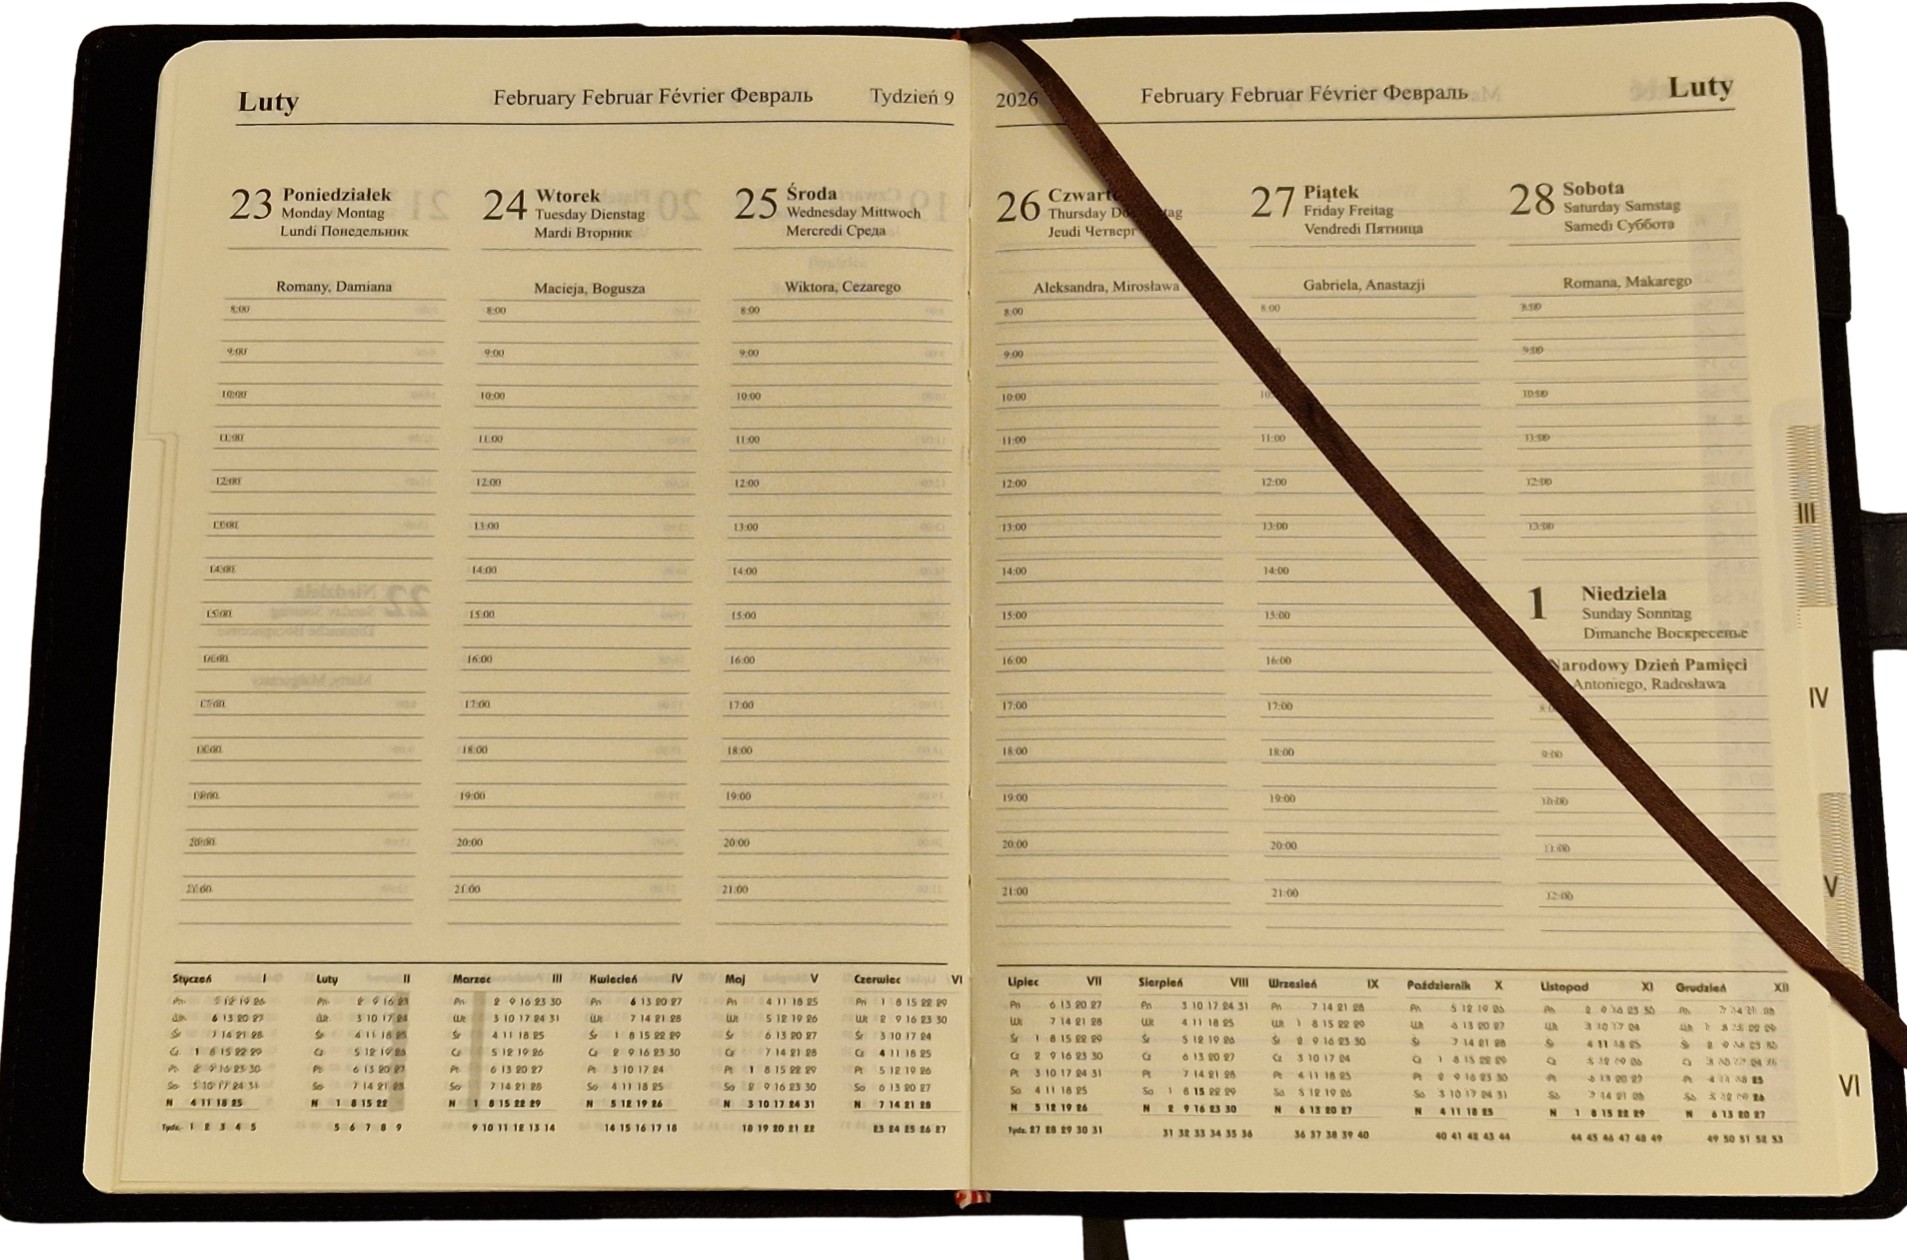 Luty February Februar Février Февраль Tydzień 9
23 Poniedziałek
Monday Montag
Lundi Понедельник
Romany, Damiana
8:00
9:00
10:00
11:00
12:00
13:00
14:00
15:00
16:00
17:00
18:00
19:00
20:00
21:00
24 Wtorek
Tuesday Dienstag
Mardi Вторник
Macieja, Bogusza
8:00
9:00
10:00
11:00
12:00
13:00
14:00
15:00
16:00
17:00
18:00
19:00
20:00
21:00
25 Środa
Wednesday Mittwoch
Mercredi Среда
Wiktora, Cezarego
8:00
9:00
10:00
11:00
12:00
13:00
14:00
15:00
16:00
17:00
18:00
19:00
20:00
21:00
Styczeń I
Pn 5 12 19 26
Wt 6 13 20 27
Śr 7 14 21 28
Cz 1 8 15 22 29
Pt 2 9 16 23 30
So 3 10 17 24 31
N 4 11 18 25
Tydz. 1 2 3 4 5
Luty II
Pn 2 9 16 23
Wt 3 10 17 24
Śr 4 11 18 25
Cz 5 12 19 26
Pt 6 13 20 27
So 7 14 21 28
N 1 8 15 22
5 6 7 8 9
Marzec III
Pn 2 9 16 23 30
Wt 3 10 17 24 31
Śr 4 11 18 25
Cz 5 12 19 26
Pt 6 13 20 27
So 7 14 21 28
N 1 8 15 22 29
9 10 11 12 13 14
Kwiecień IV
Pn 6 13 20 27
Wt 7 14 21 28
Śr 1 8 15 22 29
Cz 2 9 16 23 30
Pt 3 10 17 24
So 4 11 18 25
N 5 12 19 26
14 15 16 17 18
Maj V
Pn 4 11 18 25
Wt 5 12 19 26
Śr 6 13 20 27
Cz 7 14 21 28
Pt 1 8 15 22 29
So 2 9 16 23 30
N 3 10 17 24 31
18 19 20 21 22
Czerwiec VI
Pn 1 8 15 22 29
Wt 2 9 16 23 30
Śr 3 10 17 24
Cz 4 11 18 25
Pt 5 12 19 26
So 6 13 20 27
N 7 14 21 28
23 24 25 26 27
2026 February Februar Février Февраль Luty
26 Czwart
Thursday Do tag
Jeudi Четверг
Aleksandra, Mirosława
8:00
9:00
10:00
11:00
12:00
13:00
14:00
15:00
16:00
17:00
18:00
19:00
20:00
21:00
27 Piątek
Friday Freitag
Vendredi Пятница
Gabriela, Anastazji
8:00
10:
11:00
12:00
13:00
14:00
15:00
16:00
17:00
18:00
19:00
20:00
21:00
28 Sobota
Saturday Samstag
Samedi Суббота
Romana, Makarego
8:00
9:00
10:00
11:00
12:00
13:00
1 Niedziela
Sunday Sonntag
Dimanche Воскресенье
Narodowy Dzień Pamięci
Antoniego, Radosława
8:0
9:00
10:00
11:00
12:00
Lipiec VII
Pn 6 13 20 27
Wt 7 14 21 28
Śr 1 8 15 22 29
Cz 2 9 16 23 30
Pt 3 10 17 24 31
So 4 11 18 25
N 5 12 19 26
Tydz. 27 28 29 30 31
Sierpień VIII
Pn 3 10 17 24 31
Wt 4 11 18 25
Śr 5 12 19 26
Cz 6 13 20 27
Pt 7 14 21 28
So 1 8 15 22 29
N 2 9 16 23 30
31 32 33 34 35 36
Wrzesień IX
Pn 7 14 21 28
Wt 1 8 15 22 29
Śr 2 9 16 23 30
Cz 3 10 17 24
Pt 4 11 18 25
So 5 12 19 26
N 6 13 20 27
36 37 38 39 40
Październik X
Pn 5 12 19 26
Wt 6 13 20 27
Śr 7 14 21 28
Cz 1 8 15 22 29
Pt 2 9 16 23 30
So 3 10 17 24 31
N 4 11 18 25
40 41 42 43 44
Listopad XI
Pn 2 9 16 23 30
Wt 3 10 17 24
Śr 4 11 18 25
Cz 5 12 19 26
Pt 6 13 20 27
So 7 14 21 28
N 1 8 15 22 29
44 45 46 47 48 49
Grudzień XII
Pn 7 14 21 28
Wt 1 8 15 22 29
Śr 2 9 16 23 30
Cz 3 10 17 24 31
Pt 4 11 18 25
So 5 12 19 26
N 6 13 20 27
49 50 51 52 53
III
IV
V
VI